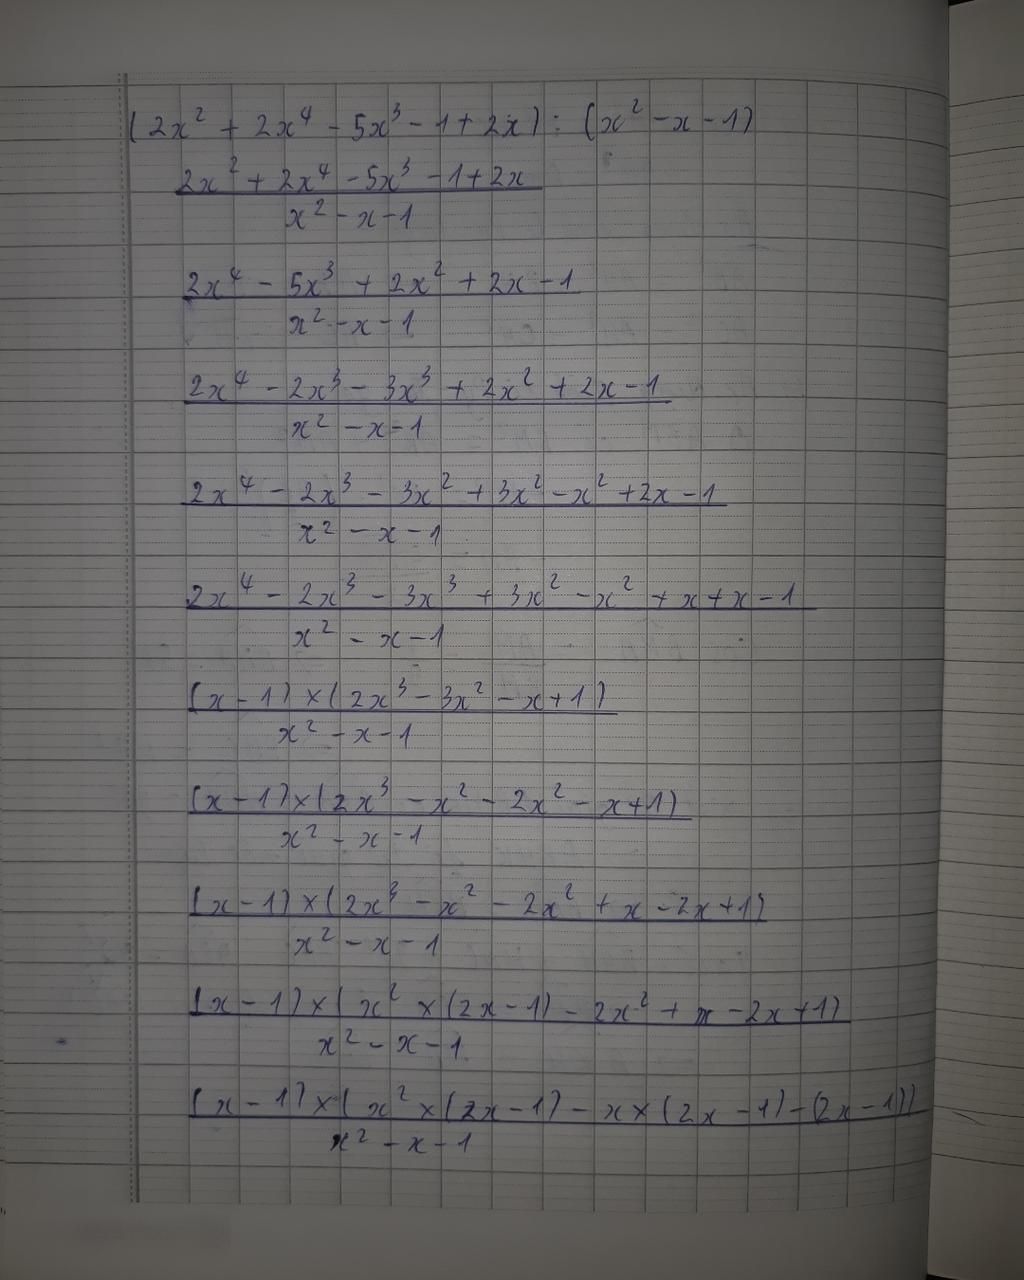 (2x² + 2x⁴ - 5x³ - 1 + 2x) : (x² - x - 1)
2x² + 2x⁴ - 5x³ - 1 + 2x
x² - x - 1
2x⁴ - 5x³ + 2x² + 2x - 1
x² - x - 1
2x⁴ - 2x³ - 3x³ + 2x² + 2x - 1
x² - x - 1
2x⁴ - 2x³ - 3x² + 3x² - x² + 2x - 1
x² - x - 1
2x⁴ - 2x³ - 3x³ + 3x² - x² + x + x - 1
x² - x - 1
(x - 1) × (2x³ - 3x² - x + 1)
x² - x - 1
(x - 1) × (2x³ - x² - 2x² - x + 1)
x² - x - 1
(x - 1) × (2x³ - x² - 2x² + x - 2x + 1)
x² - x - 1
(x - 1) × (x² × (2x - 1) - 2x² + x - 2x + 1)
x² - x - 1
(x - 1) × (x² × (2x - 1) - x × (2x - 1) - (2x - 1))
x² - x - 1